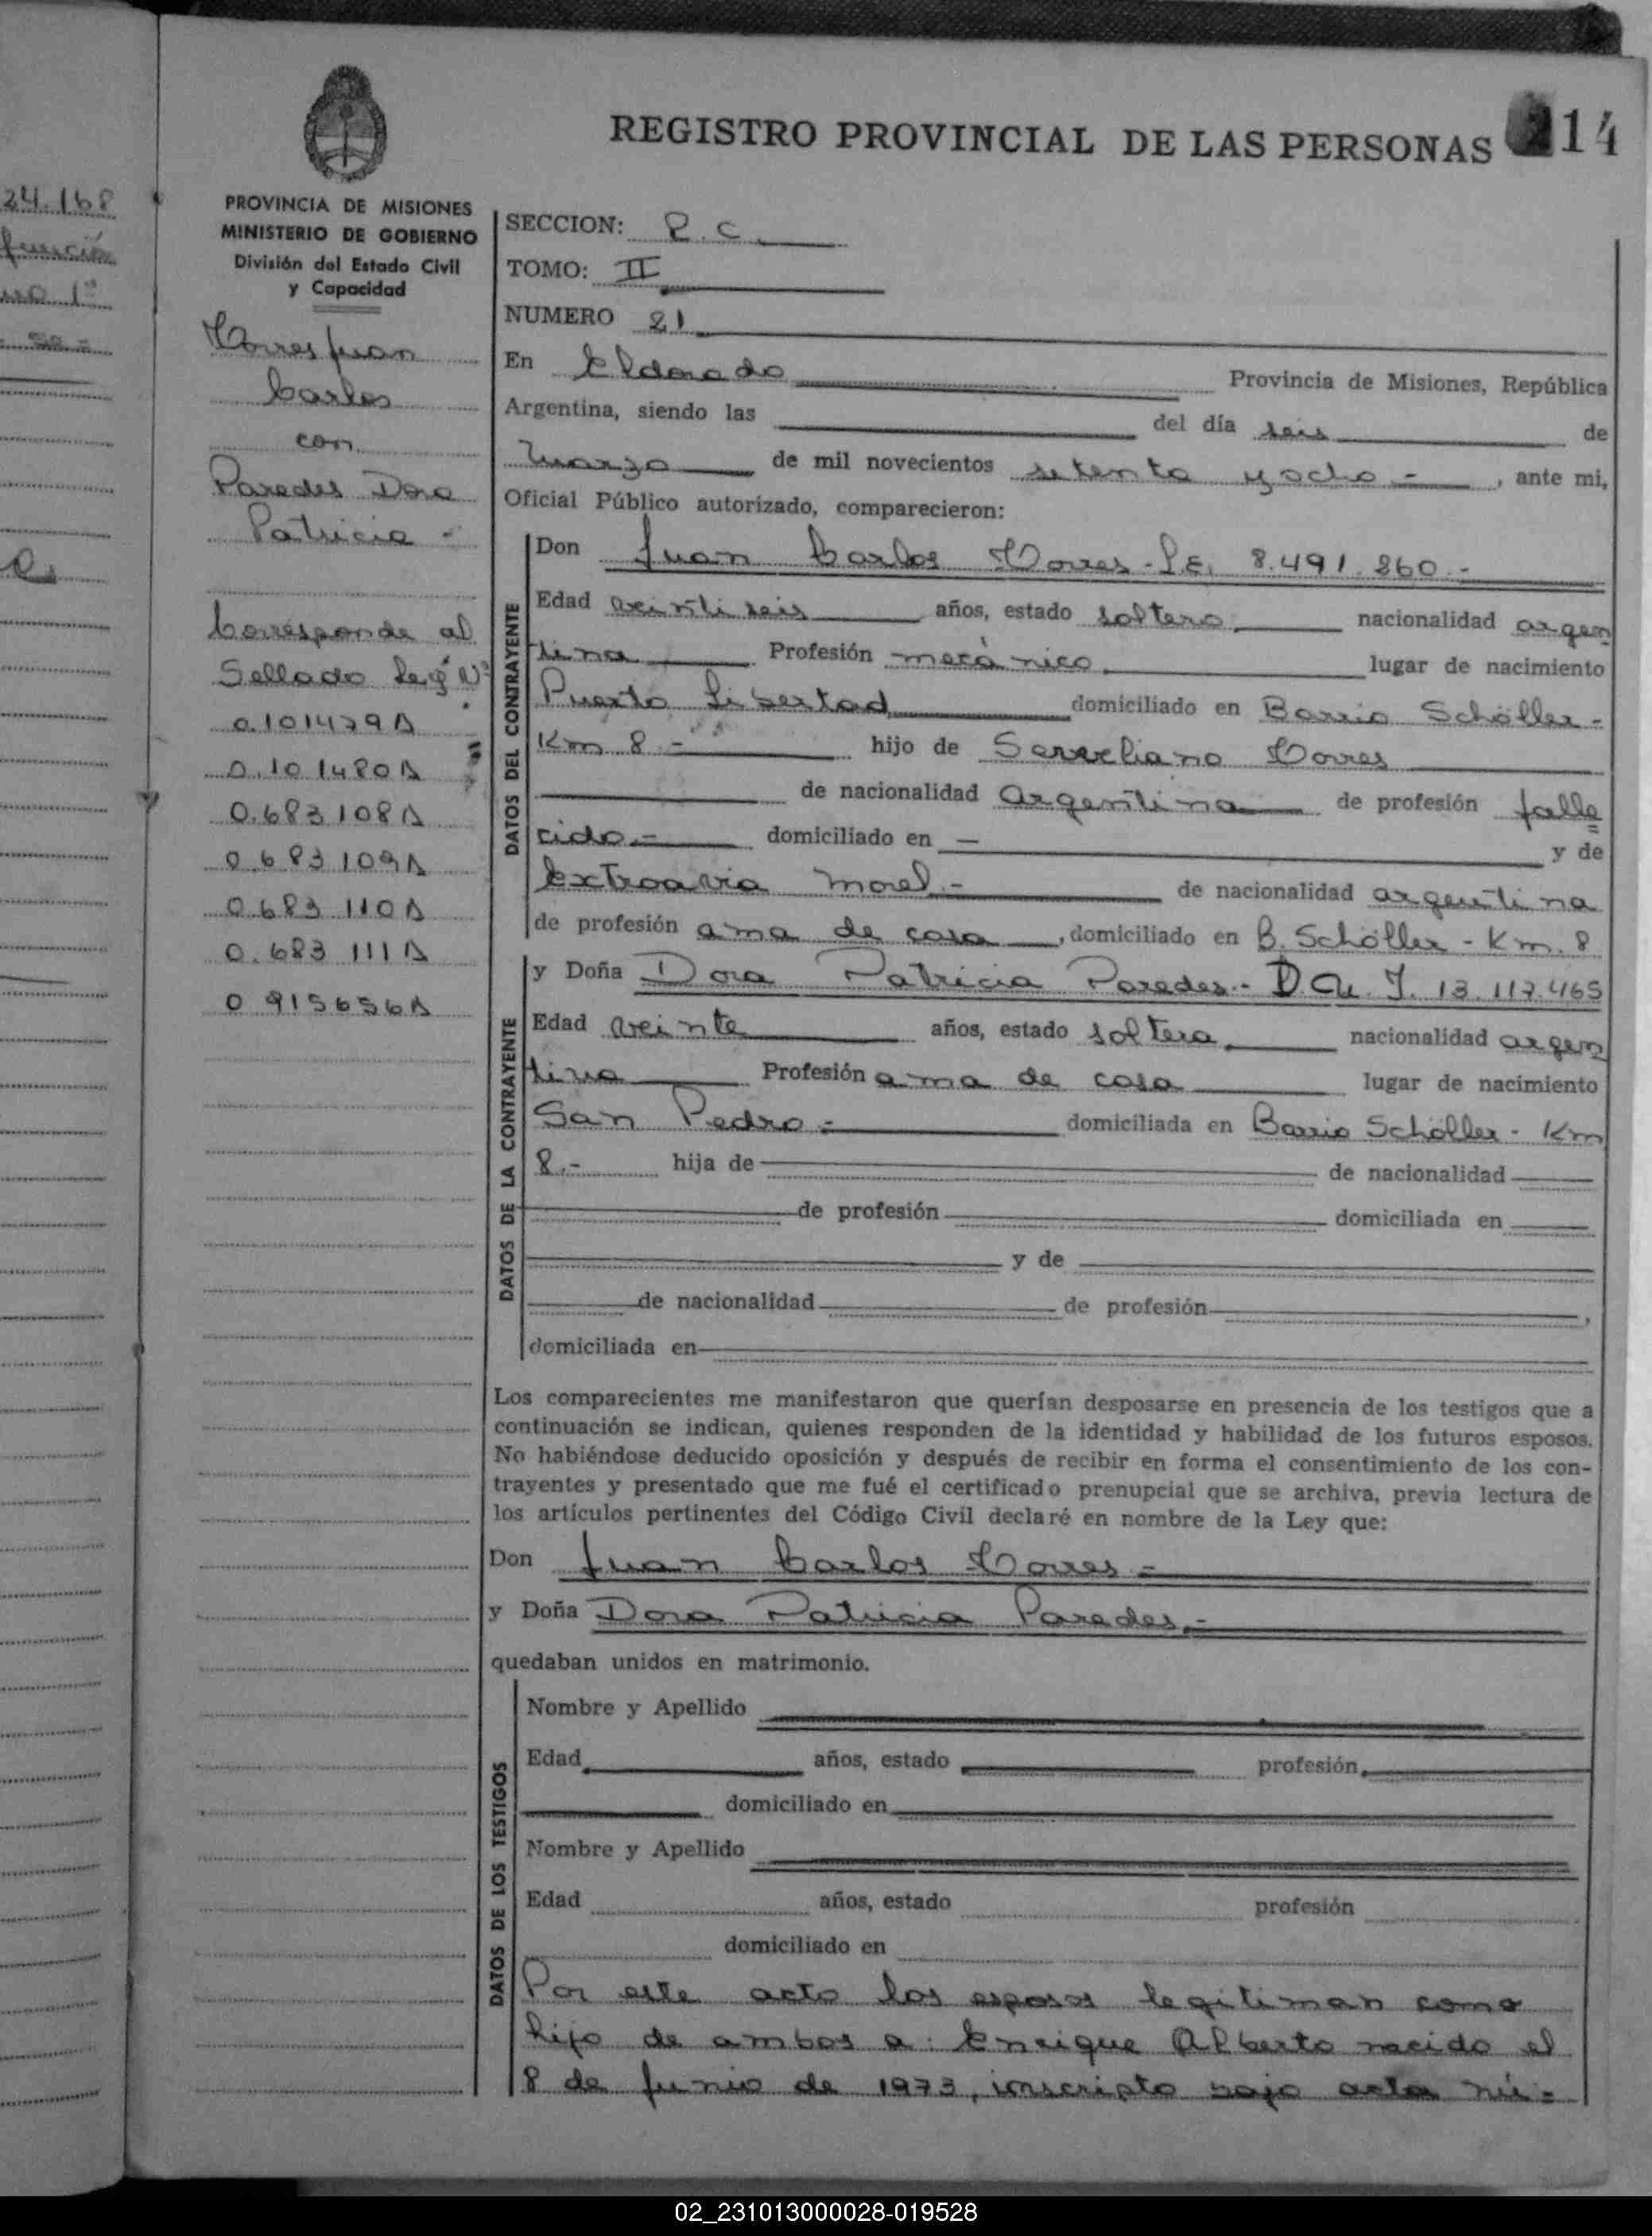 REGISTRO PROVINCIAL DE LAS PERSONAS 214
PROVINCIA DE MISIONES
MINISTERIO DE GOBIERNO
División del Estado Civil
y Capacidad
Torres Juan
Carlos
con
Paredes Dora
Patricia -
Corresponde al
Sellado Ley Nº
0.101479 A
0.101480 A
0.683108 A
0.683109 A
0.683110 A
0.683111 A
0 915656 A
24.168
función
1º
SECCION: R.C.
TOMO: II
NUMERO 21
En Eldorado Provincia de Misiones, República
Argentina, siendo las del día seis de
Marzo de mil novecientos setenta y ocho - , ante mi,
Oficial Público autorizado, comparecieron:
DATOS DEL CONTRAYENTE
Don Juan Carlos Torres - L.E. 8.491.260 -
Edad veintiseis años, estado soltero nacionalidad argen
tina Profesión mecánico lugar de nacimiento
Puerto Libertad domiciliado en Barrio Schöller -
Km 8 - hijo de Torres
de nacionalidad argentina de profesión falle
cido.- domiciliado en — y de
Morel.- de nacionalidad argentina
de profesión ama de casa , domiciliado en B. Schöller - Km. 8
DATOS DE LA CONTRAYENTE
y Doña Dora Patricia Paredes.- D.N.I. 13.117.465
Edad veinte años, estado soltera nacionalidad argen
tina Profesión ama de casa lugar de nacimiento
San Pedro.- domiciliada en Barrio Schöller - Km
8.- hija de de nacionalidad
de profesión domiciliada en
y de
de nacionalidad de profesión ,
domiciliada en
Los comparecientes me manifestaron que querían desposarse en presencia de los testigos que a
continuación se indican, quienes responden de la identidad y habilidad de los futuros esposos.
No habiéndose deducido oposición y después de recibir en forma el consentimiento de los con-
trayentes y presentado que me fué el certificado prenupcial que se archiva, previa lectura de
los artículos pertinentes del Código Civil declaré en nombre de la Ley que:
Don Juan Carlos Torres -
y Doña Dora Patricia Paredes.-
quedaban unidos en matrimonio.
DATOS DE LOS TESTIGOS
Nombre y Apellido
Edad años, estado profesión
domiciliado en
Nombre y Apellido
Edad años, estado profesión
domiciliado en
Por este acto los esposos legitiman como
hijo de ambos a: Enrique Alberto nacido el
8 de Junio de 1973, inscripto bajo acta nú-
02_231013000028-019528